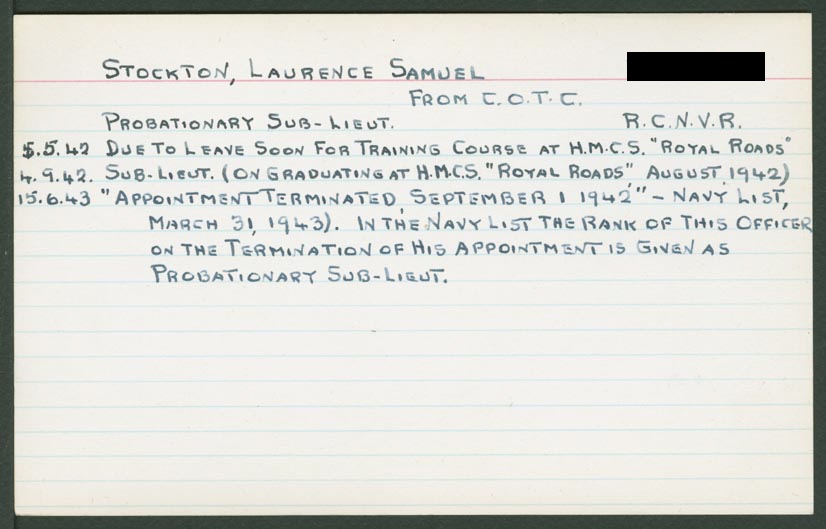 STOCKTON, LAURENCE SAMUEL
FROM C.O.T.C.
PROBATIONARY SUB-LIEUT. R.C.N.V.R.
5.5.42 DUE TO LEAVE SOON FOR TRAINING COURSE AT H.M.C.S. "ROYAL ROADS"
4.9.42. SUB-LIEUT. (ON GRADUATING AT H.M.C.S. "ROYAL ROADS" AUGUST, 1942)
15.6.43 "APPOINTMENT TERMINATED, SEPTEMBER 1 1942" - NAVY LIST,
MARCH 31, 1943). IN THE NAVY LIST THE RANK OF THIS OFFICER
ON THE TERMINATION OF HIS APPOINTMENT IS GIVEN AS
PROBATIONARY SUB-LIEUT.